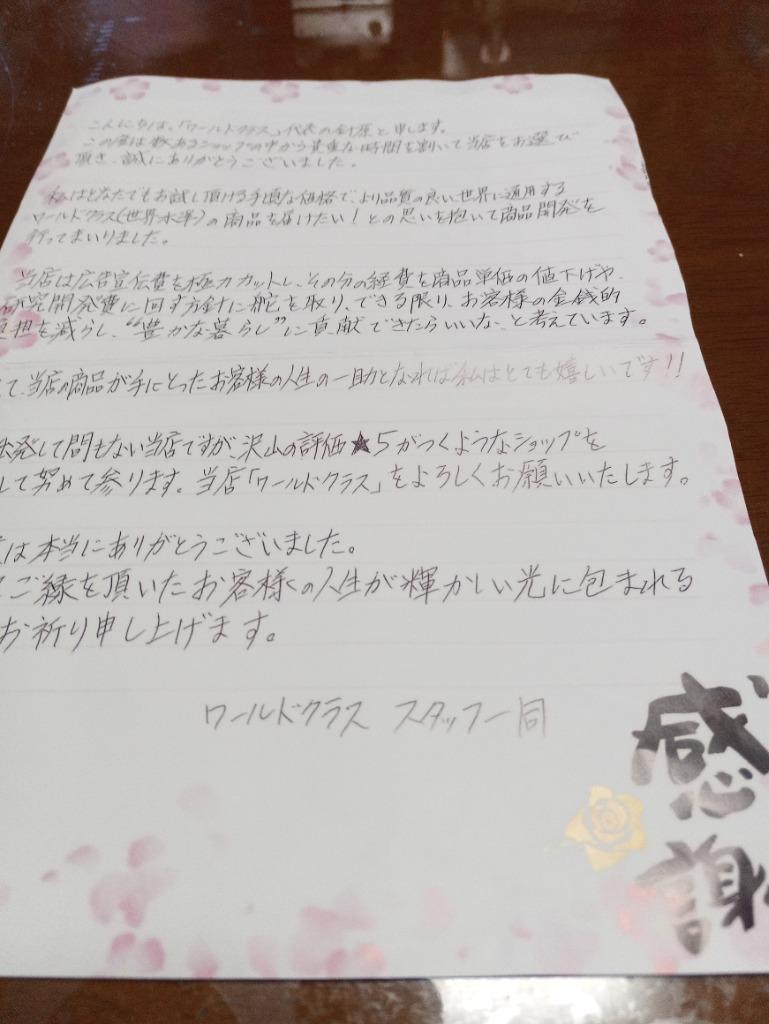 こんにちは、「ワールドクラス」代表の針原と申します。
この度は数あるショップの中から貴重な時間を割いて当店をお選び
頂き、誠にありがとうございました。
私はどなたでもお試し頂ける手頃な価格で、より品質の良い世界に通用する
ワールドクラス(世界水準)の商品を届けたい!との思いを抱いて商品開発を
行ってまいりました。
当店は広告宣伝費を極力カットし、その分の経費を商品単価の値下げや、
研究開発費に回す方針に舵を取り、できる限り、お客様の金銭的
負担を減らし、“豊かな暮らし”に貢献できたらいいな、と考えています。
て、当店の商品が手にとったお客様の人生の一助となれば私はとても嬉しいです!!
出発して間もない当店ですが、沢山の評価★5がつくようなショップを
して努めて参ります。当店「ワールドクラス」をよろしくお願いいたします。
は本当にありがとうございました。
ご縁を頂いたお客様の人生が輝かしい光に包まれる
お祈り申し上げます。
ワールドクラス スタッフ一同
感
謝